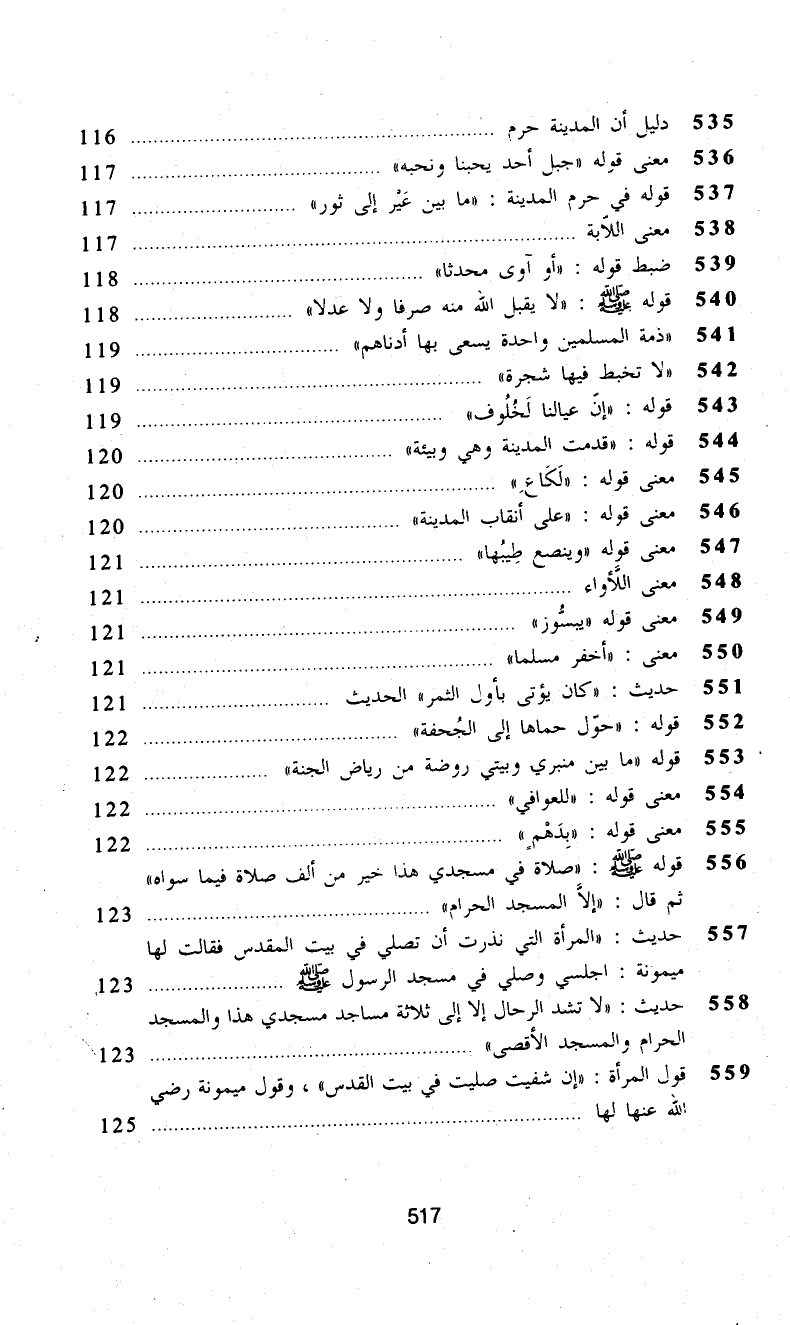 535 دليل أن المدينة حرم ........ 116
536 معنى قوله «جبل أحد يحبنا ونحبه» ........ 117
537 قوله في حرم المدينة : «ما بين عَيْر إلى ثور» ........ 117
538 معنى اللاّبة ........ 117
539 ضبط قوله : «أو آوى محدثا» ........ 118
540 قوله ﷺ : «لا يقبل الله منه صرفا ولا عدلا» ........ 118
541 «ذمة المسلمين واحدة يسعى بها أدناهم» ........ 119
542 «لا تخبط فيها شجرة» ........ 119
543 قوله : «إنّ عيالنا لَخُلُوف» ........ 119
544 قوله : «قدمت المدينة وهي وبيئة» ........ 120
545 معنى قوله : «لَكَاعِ» ........ 120
546 معنى قوله : «على أنقاب المدينة» ........ 120
547 معنى قوله «وينصع طِيبُها» ........ 121
548 معنى اللَّأواء ........ 121
549 معنى قوله «يبسُّوز» ........ 121
550 معنى : «أخفر مسلما» ........ 121
551 حديث : «كان يؤتى بأول الثمر» الحديث ........ 121
552 قوله : «حوّل حماها إلى الجُحفة» ........ 122
553 قوله «ما بين منبري وبيتي روضة من رياض الجنة» ........ 122
554 معنى قوله : «للعوافي» ........ 122
555 معنى قوله : «بِدَهْمٍ» ........ 122
556 قوله ﷺ : «صلاة في مسجدي هذا خير من ألف صلاة فيما سواه»
ثم قال : «إلاَّ المسجد الحرام» ........ 123
557 حديث : «المرأة التي نذرت أن تصلي في بيت المقدس فقالت لها
ميمونة : اجلسي وصلي في مسجد الرسول ﷺ ........ 123
558 حديث : «لا تشد الرحال إلا إلى ثلاثة مساجد مسجدي هذا والمسجد
الحرام والمسجد الأقصى» ........ 123
559 قول المرأة : «إن شفيت صليت في بيت القدس» ، وقول ميمونة رضي
الله عنها لها ........ 125
517